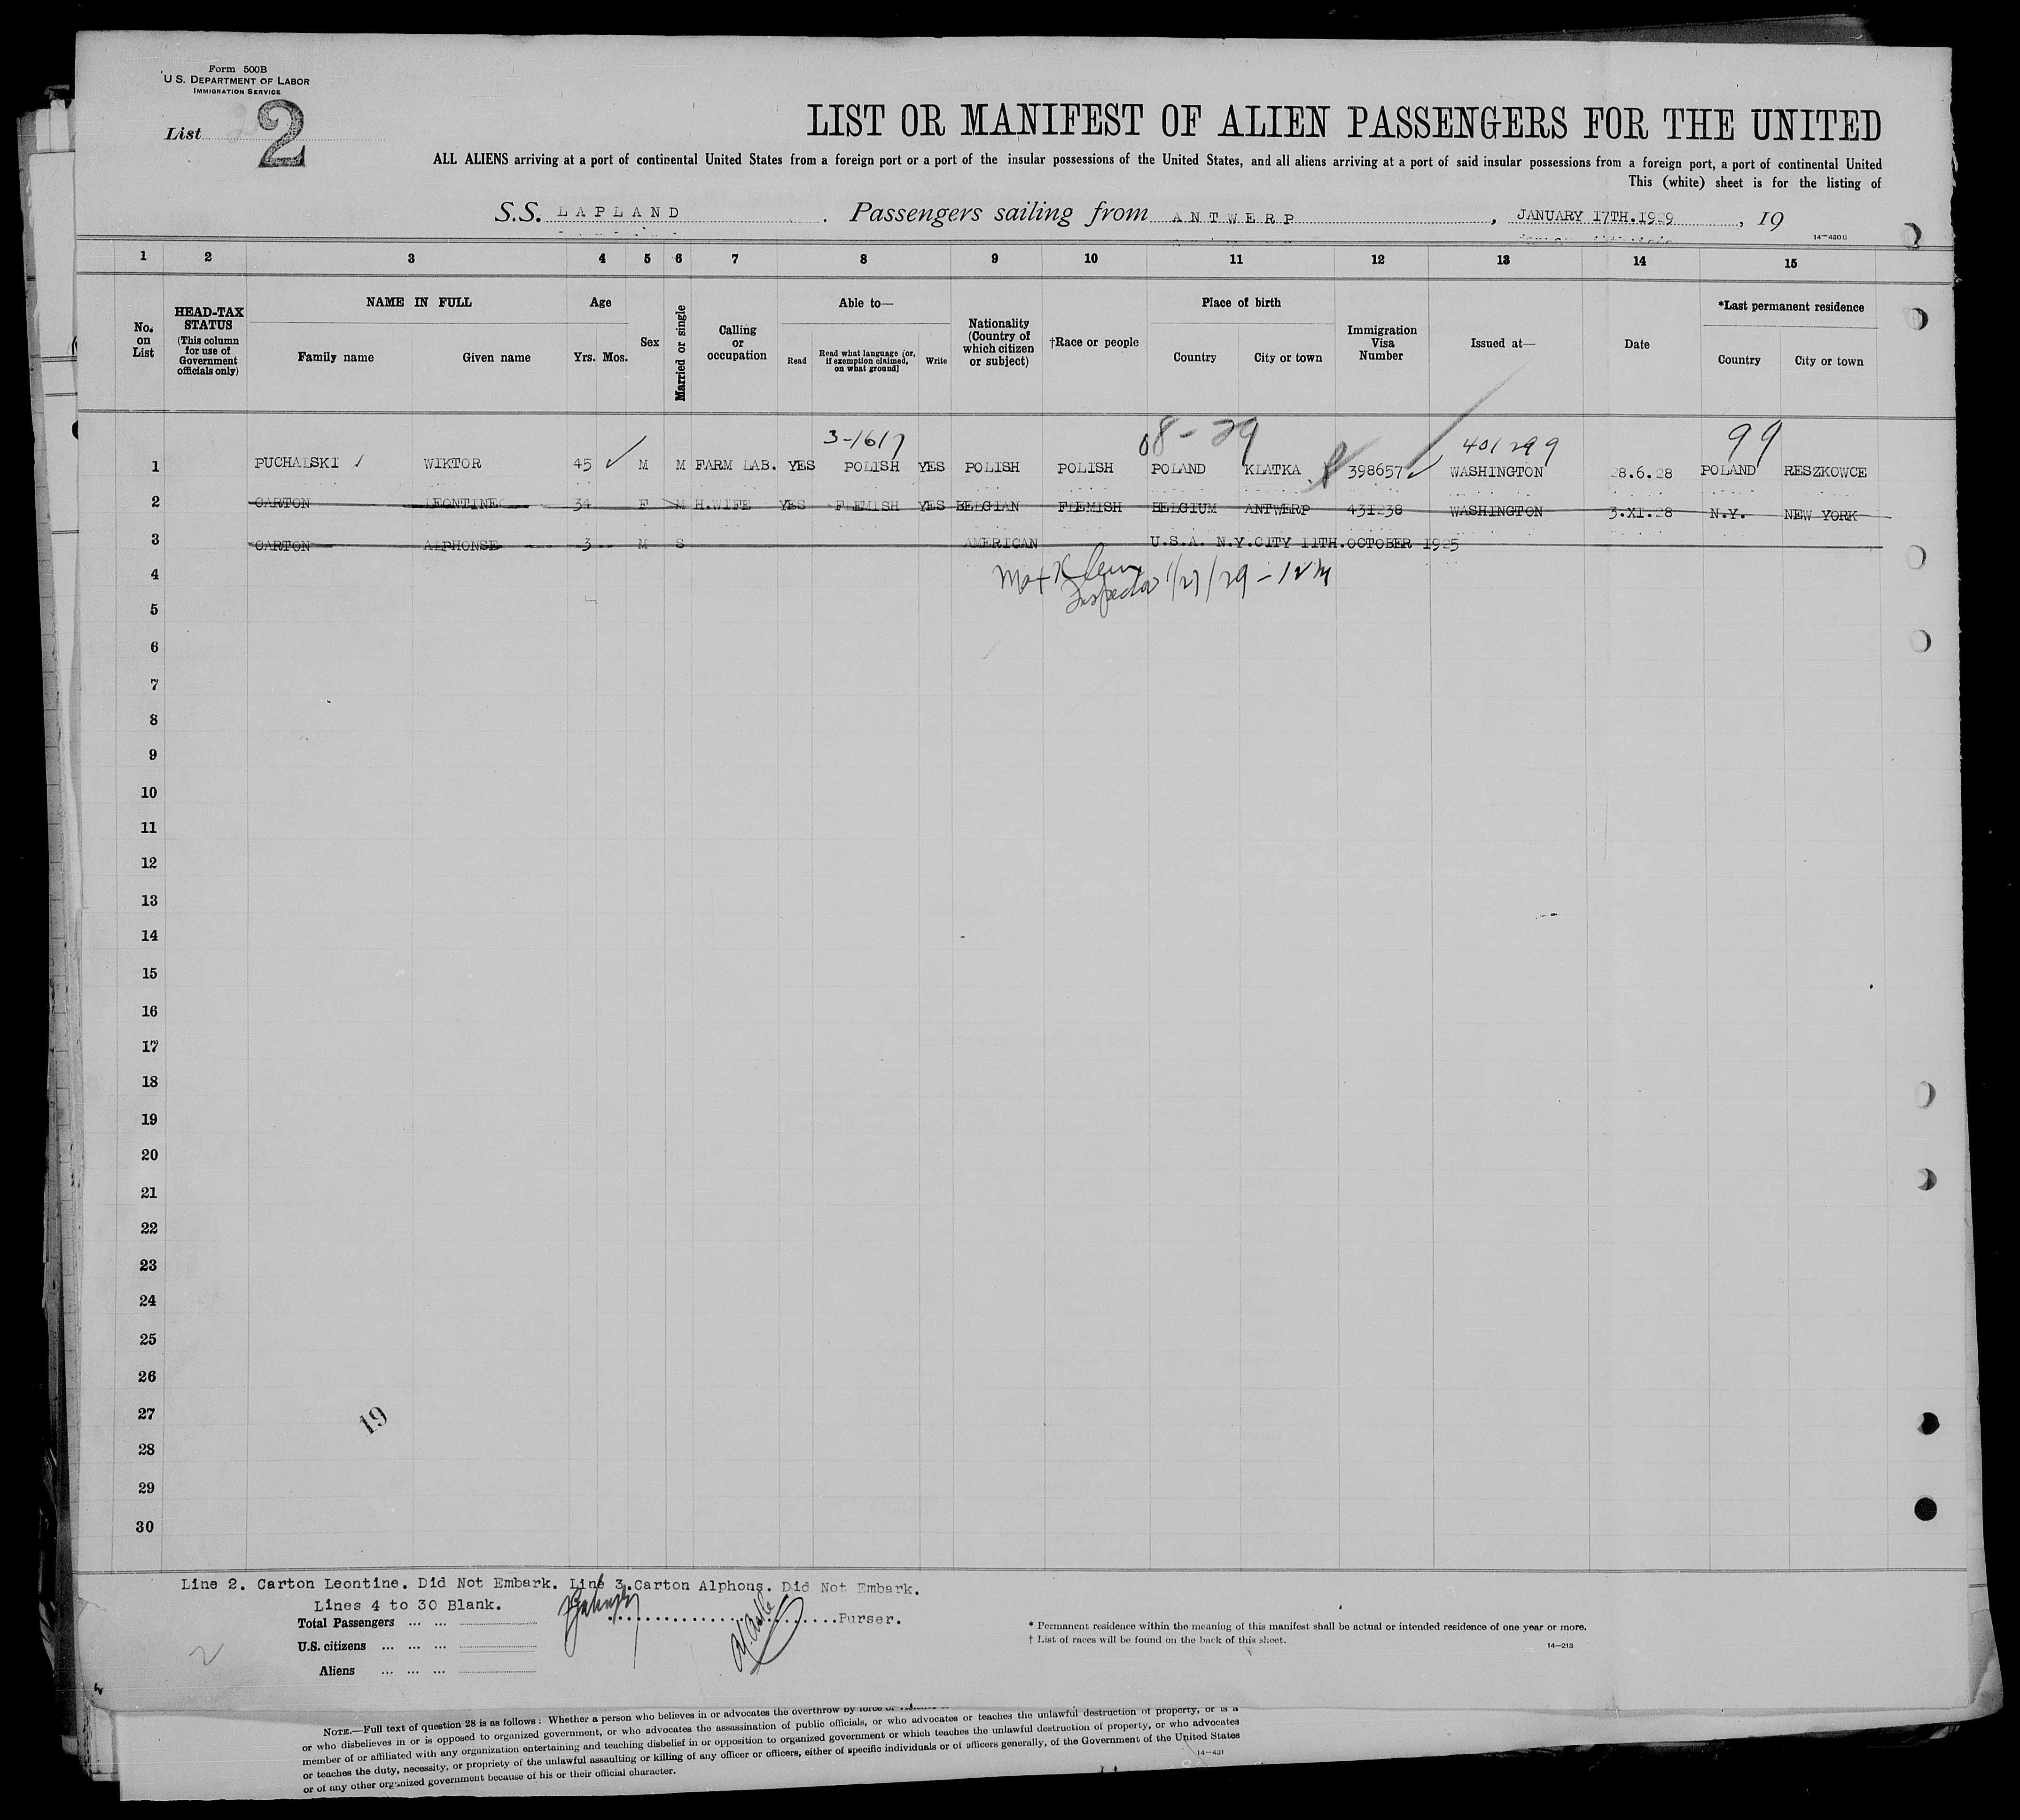 Form 500B
U.S. DEPARTMENT OF LABOR
IMMIGRATION SERVICE
List 2
LIST OR MANIFEST OF ALIEN PASSENGERS FOR THE UNITED
ALL ALIENS arriving at a port of continental United States from a foreign port or a port of the insular possessions of the United States, and all aliens arriving at a port of said insular possessions from a foreign port, a port of continental United
This (white) sheet is for the listing of
S.S. LAPLAND . Passengers sailing from ANTWERP , JANUARY 17TH.1929 , 19
14—430B
1 2 3 4 5 6 7 8 9 10 11 12 13 14 15
No. on List
HEAD-TAX STATUS (This column for use of Government officials only)
NAME IN FULL
Family name Given name
Age
Yrs. Mos.
Sex
Married or single
Calling or occupation
Able to—
Read
Read what language (or, if exemption claimed, on what ground)
Write
Nationality (Country of which citizen or subject)
†Race or people
Place of birth
Country City or town
Immigration Visa Number
Issued at—
Date
*Last permanent residence
Country City or town
3-1617 08-29 401299 99
1 PUCHALSKI WIKTOR 45 M M FARM LAB. YES POLISH YES POLISH POLISH POLAND KLATKA 398657 WASHINGTON 28.6.28 POLAND RESZKOWCE
2 CARTON LEONTINE 34 F M H.WIFE YES FLEMISH YES BELGIAN FLEMISH BELGIUM ANTWERP 431238 WASHINGTON 3.XI.28 N.Y. NEW YORK
3 CARTON ALPHONSE 3 M S AMERICAN U.S.A. N.Y.CITY 11TH.OCTOBER 1925
4
Inspector 1/27/29
5
6
7
8
9
10
11
12
13
14
15
16
17
18
19
20
21
22
23
24
25
26
27
19
28
29
30
Line 2. Carton Leontine. Did Not Embark. Line 3.Carton Alphons. Did Not Embark.
Lines 4 to 30 Blank.
Total Passengers ... ...
Purser.
U.S. citizens ... ... ...
Aliens ... ... ...
2
* Permanent residence within the meaning of this manifest shall be actual or intended residence of one year or more.
† List of races will be found on the back of this sheet.
14—213
NOTE.—Full text of question 28 is as follows: Whether a person who believes in or advocates the overthrow by force or
or who disbelieves in or is opposed to organized government, or who advocates the assassination of public officials, or who advocates or teaches the unlawful destruction of property, or is a
member of or affiliated with any organization entertaining and teaching disbelief in or opposition to organized government or which teaches the unlawful destruction of property, or who advocates
or teaches the duty, necessity, or propriety of the unlawful assaulting or killing of any officer or officers, either of specific individuals or of officers generally, of the Government of the United States
or of any other organized government because of his or their official character.
14—431